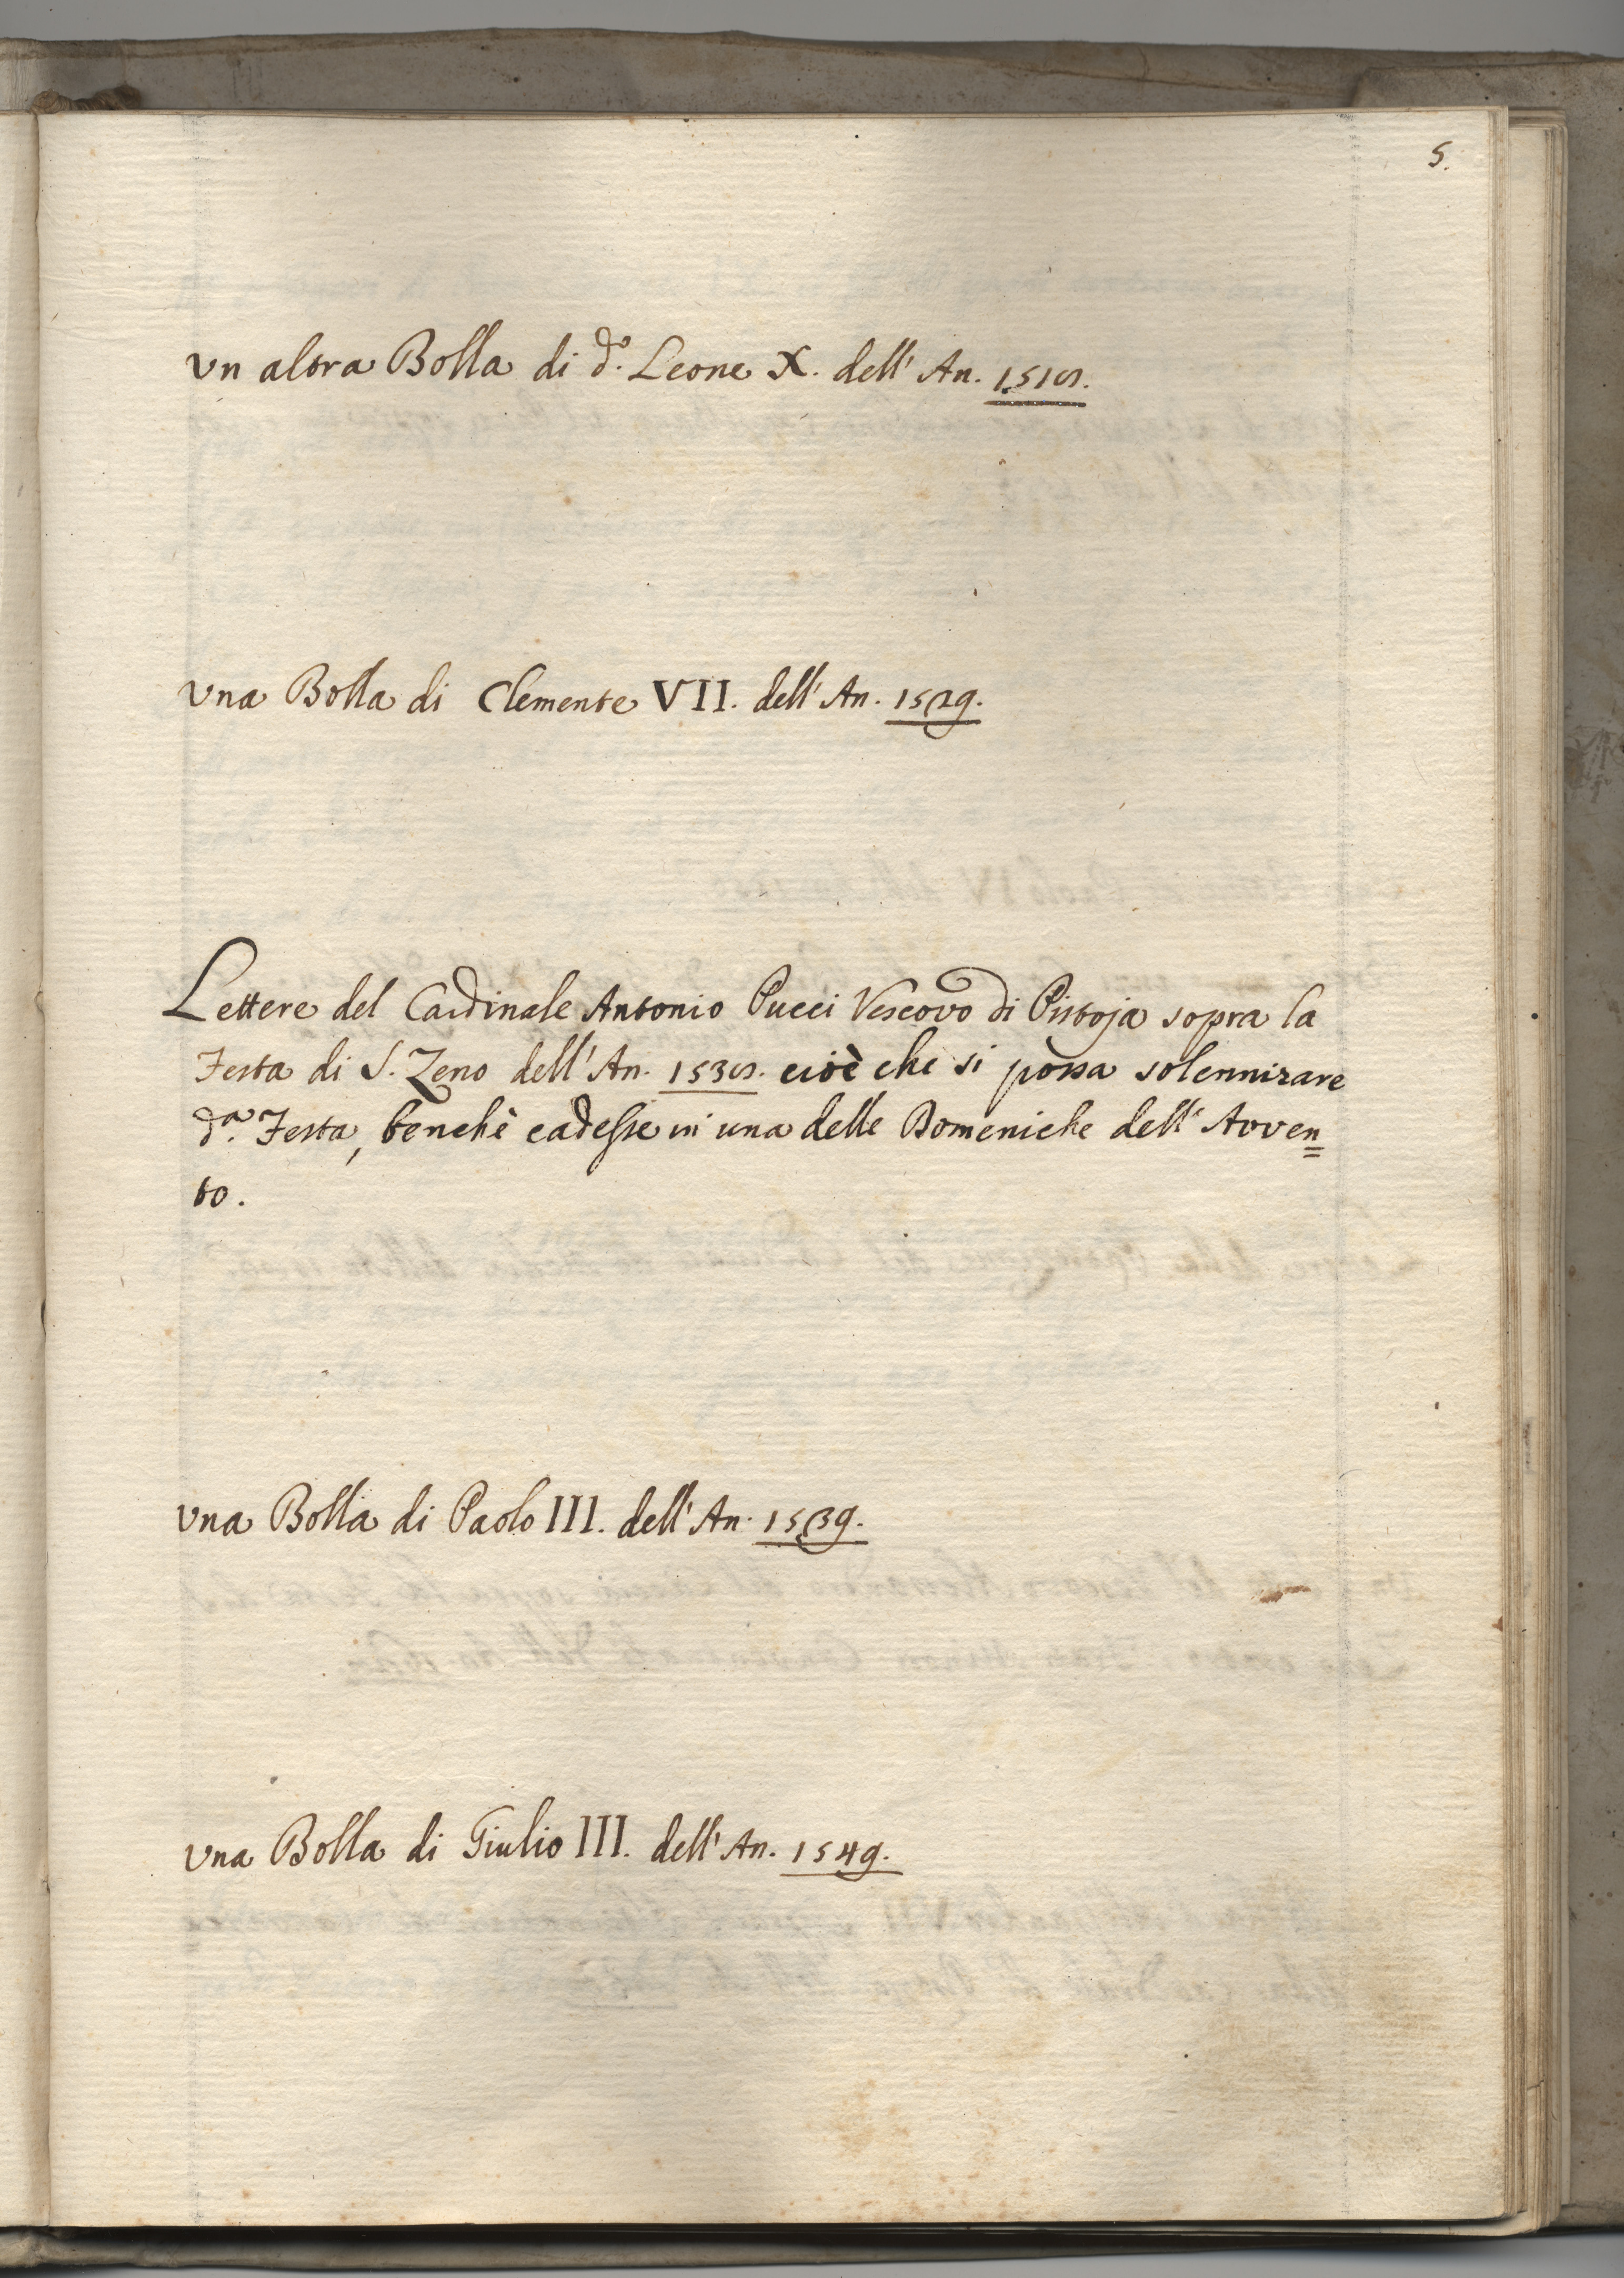 5.
Vn altra Bolla di d.º Leone X. dell' An. 1515.
Vna Bolla di Clemente VII. dell' An. 1529.
Lettere del Cardinale Antonio Pucci Vescovo di Pistoja sopra la
Festa di S. Zeno dell' An. 1535. cioè che si possa solennizare
d.ª Festa, benchè cadesse in una delle Domeniche dell' Avven=
to.
Vna Bolla di Paolo III. dell' An. 1539.
Vna Bolla di Giulio III. dell' An. 1549.